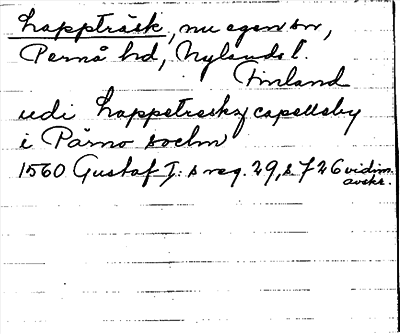 Lappträsk, nu egen sn,
Pernå hd, Nylands l.
Finland
udi Lappetreskz capellsby
i Pärno sochn
1560 Gustaf I:s reg. 29, s 726 vidim.
avskr.